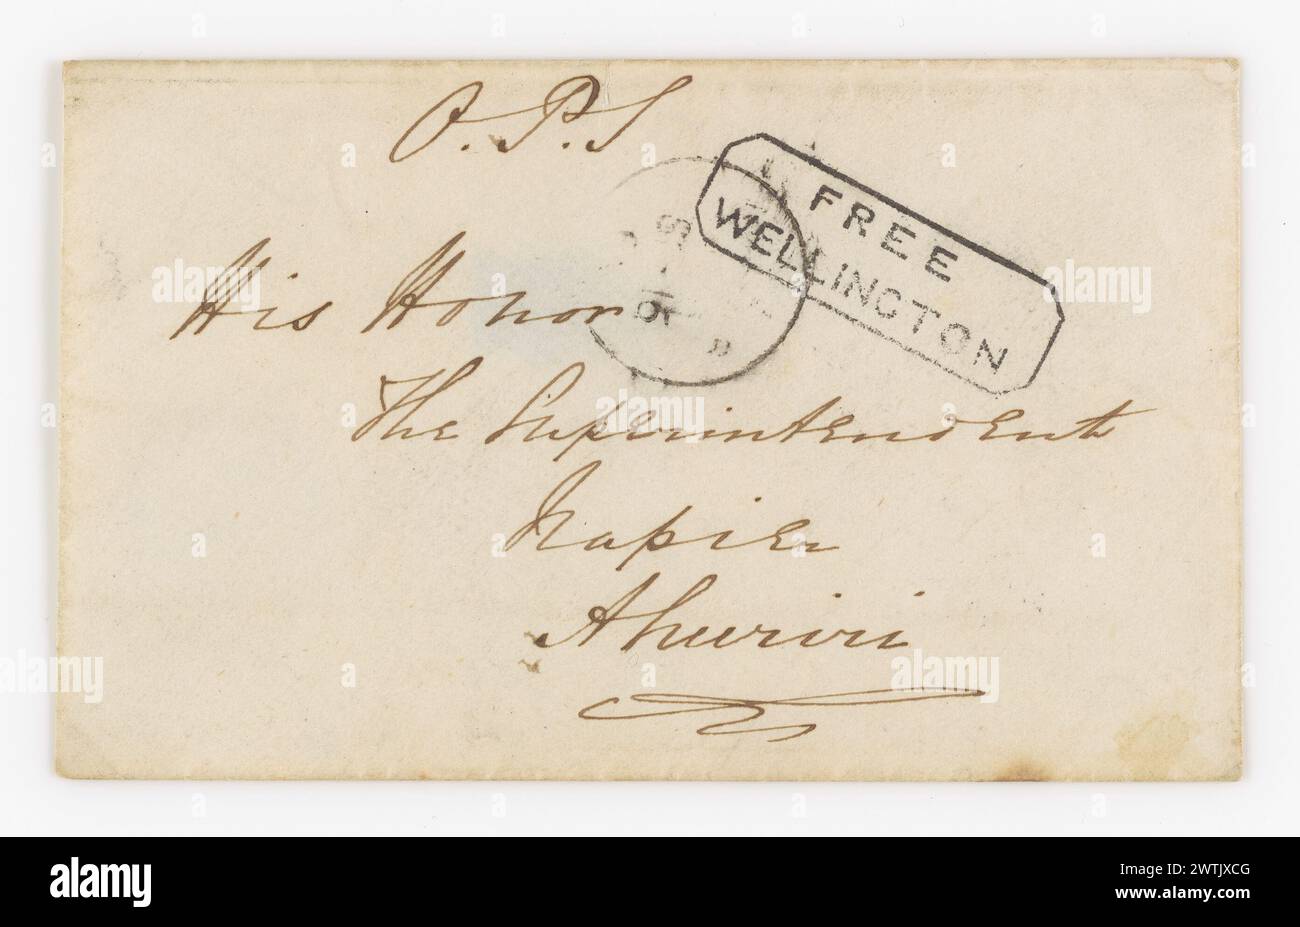 O.P.S
FREE
WELLINGTON
His Honor
The Superintendent
Napier
Ahuriri
alamy
Image ID: 2WTJXCG
www.alamy.com